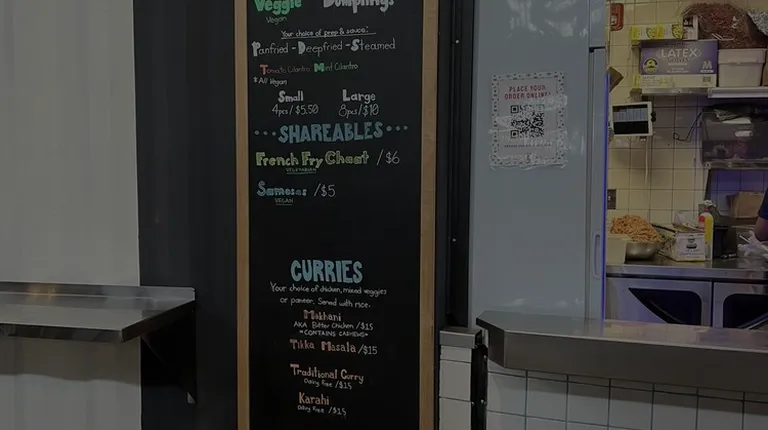 Veggie Dumplings
Vegan
Your choice of prep & sauce:
Panfried - Deepfried - Steamed
Tomato Cilantro Mint Cilantro
*All Vegan
Small Large
4pcs/$5.50 8pcs/$10
SHAREABLES
French Fry Chaat /$6
VEGETARIAN
Samosas /$5
VEGAN
CURRIES
Your choice of chicken, mixed veggies
or paneer. Served with rice.
Makhani
AKA Butter Chicken /$15
*CONTAINS CASHEWS*
Tikka Masala /$15
Traditional Curry
Dairy Free /$15
Karahi
Dairy Free /$15
PLACE YOUR
ORDER ONLINE!
LATEX
M